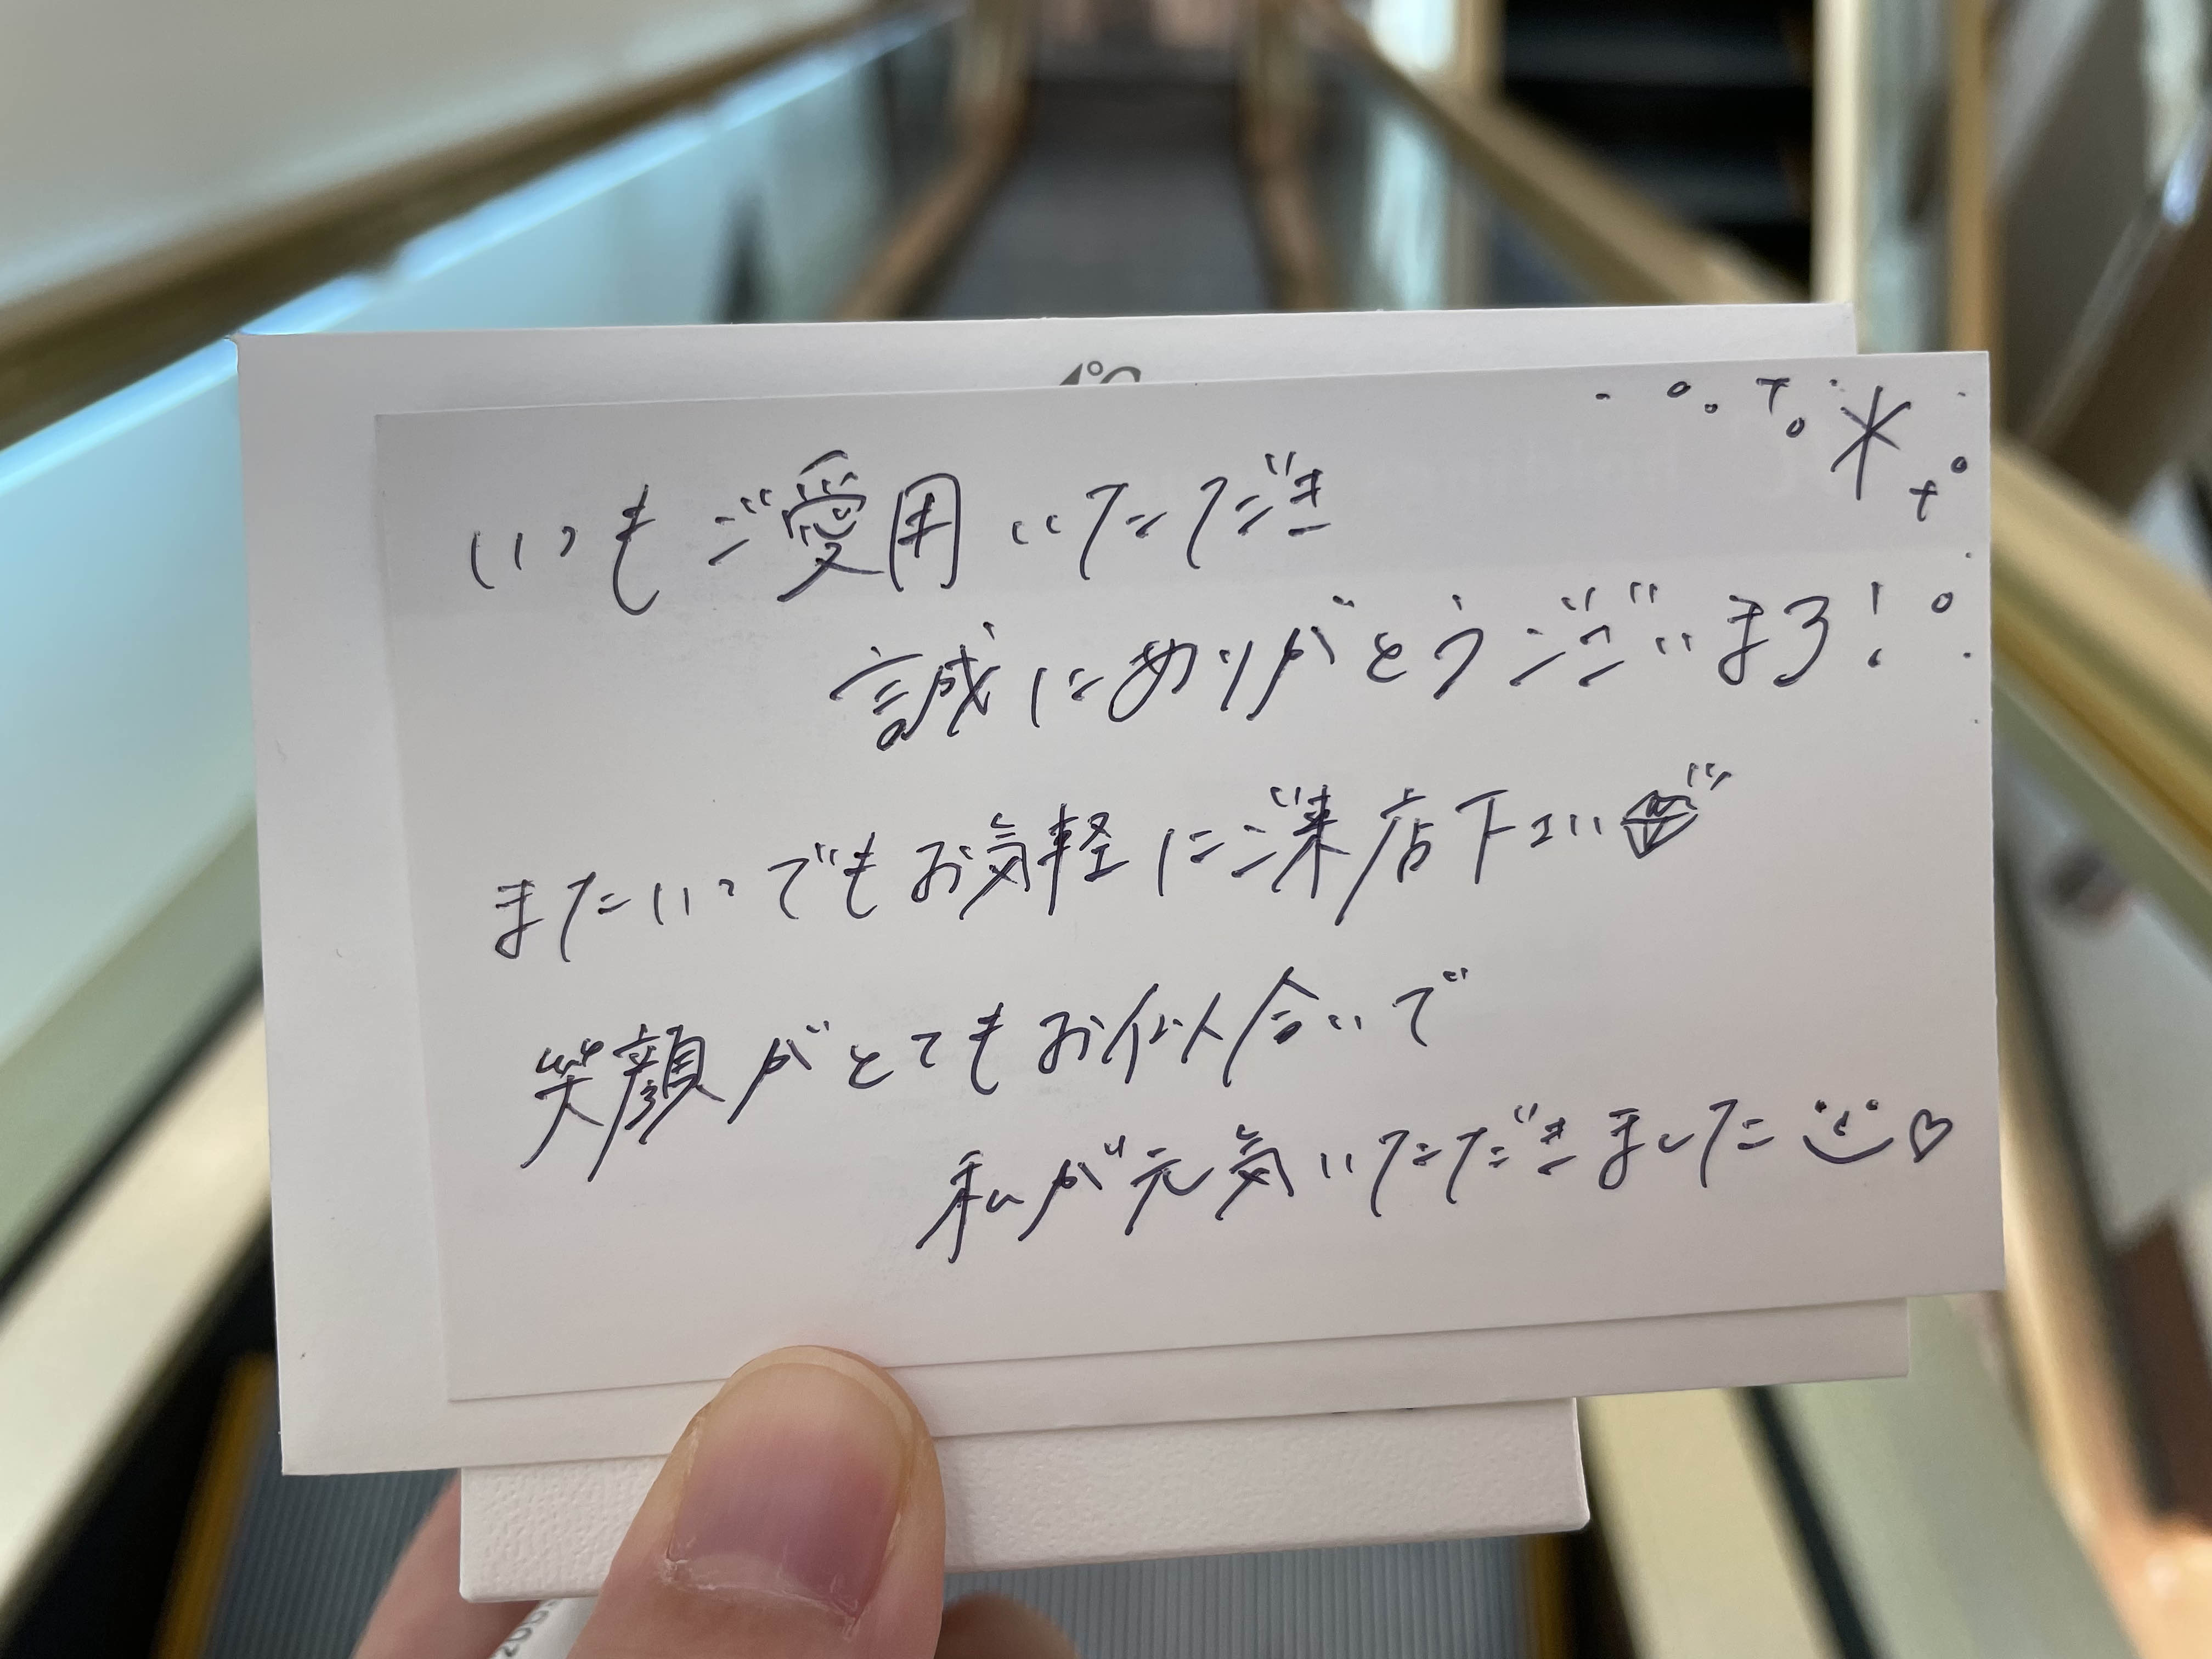 いつもご愛用いただき
誠にありがとうございます!
またいつでもお気軽にご来店下さい
笑顔がとてもお似合いで
私が元気いただきました